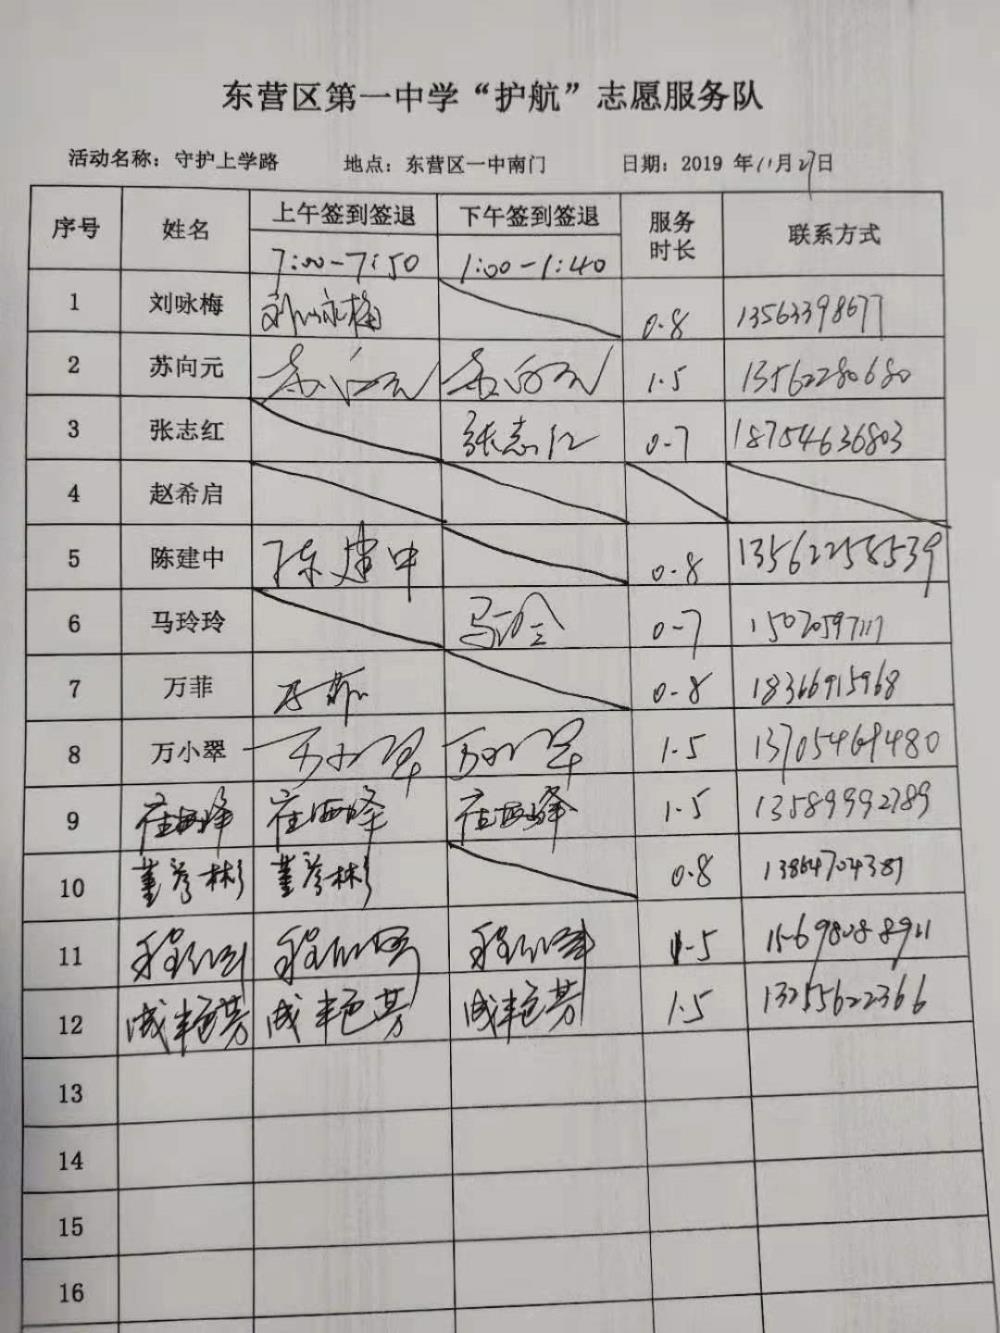 东营区第一中学“护航”志愿服务队
活动名称：守护上学路 地点：东营区一中南门 日期：2019 年11月27日
序号 姓名 上午签到签退 下午签到签退 服务时长 联系方式
7:00-7:50 1:00-1:40
1 刘咏梅 刘咏梅 0.8 13563398677
2 苏向元 苏向元 苏向元 1.5 13562280680
3 张志红 张志红 0.7 18754636803
4 赵希启
5 陈建中 陈建中 0.8 13562258539
6 马玲玲 马玲玲 0.7 15020597117
7 万菲 万菲 0.8 18366915968
8 万小翠 万小翠 万小翠 1.5 13705469480
9 崔海峰 崔海峰 崔海峰 1.5 13589992789
10 董彦彬 董彦彬 0.8 13864704381
11 1.5 15698088911
12 成艳芳 成艳芳 成艳芳 1.5 13255622366
13
14
15
16